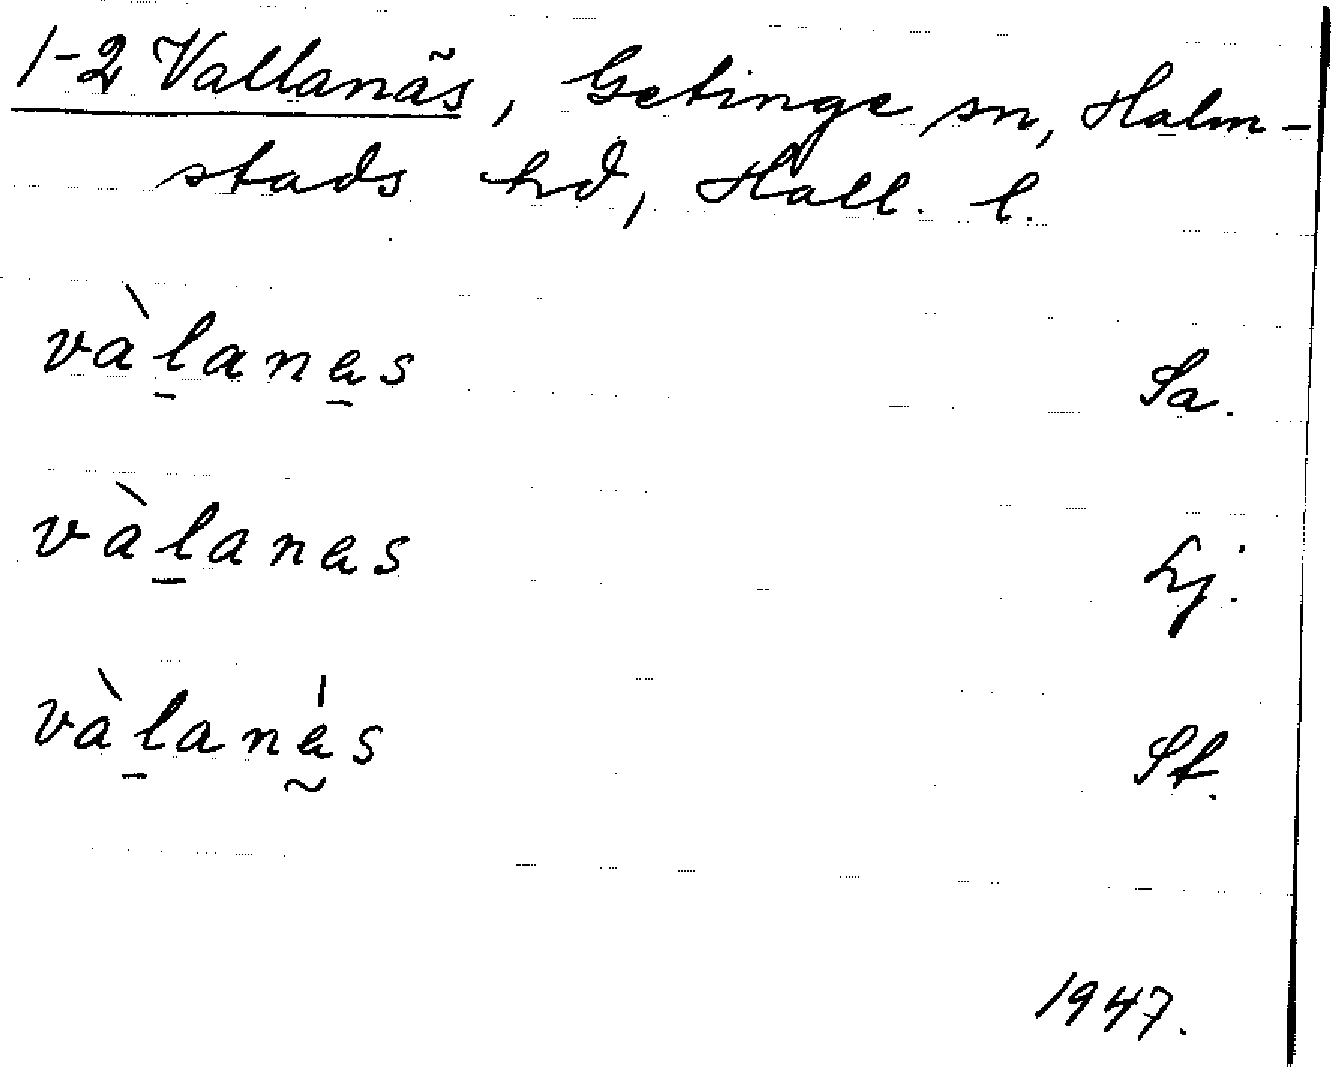 1-2 Vallanäs, Getinge sn, Halm-
stads hd, Hall. l.
vàlanas Sa.
vàlanas Lj.
vàlanás St.
1947.